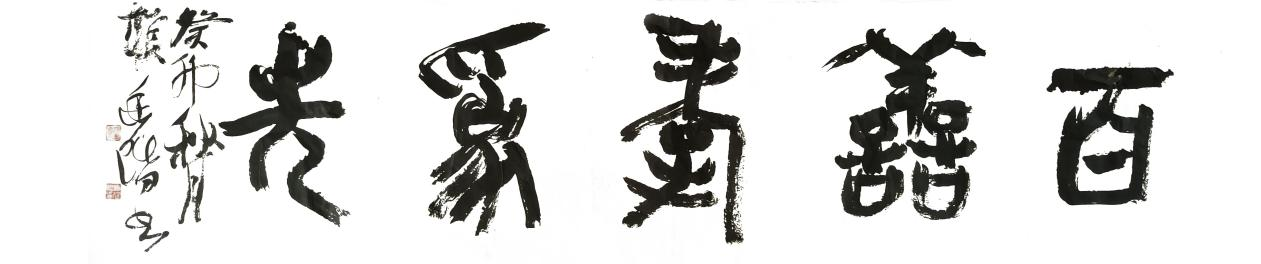 百善孝為先
癸卯秋月
書